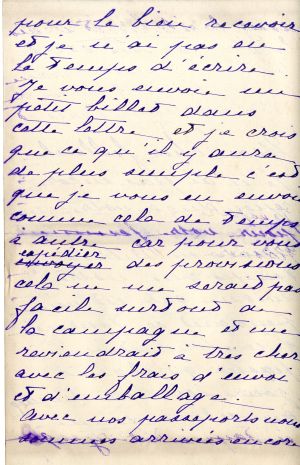 pour le bien recevoir
et je n'ai pas eu
le temps d'écrire.
Je vous envoie un
petit billet dans
cette lettre et je crois
que ce qu'il y aura
de plus simple c'est
que je vous en envoie
comme cela de temps
à autre car pour vous
expédier
envoyer des provisions
cela ne me serait pas
facile surtout de
la campagne et me
reviendrait à très cher
avec les frais d'envoi
et d'emballage.
Avec nos passeports nous
sommes arrivés encore